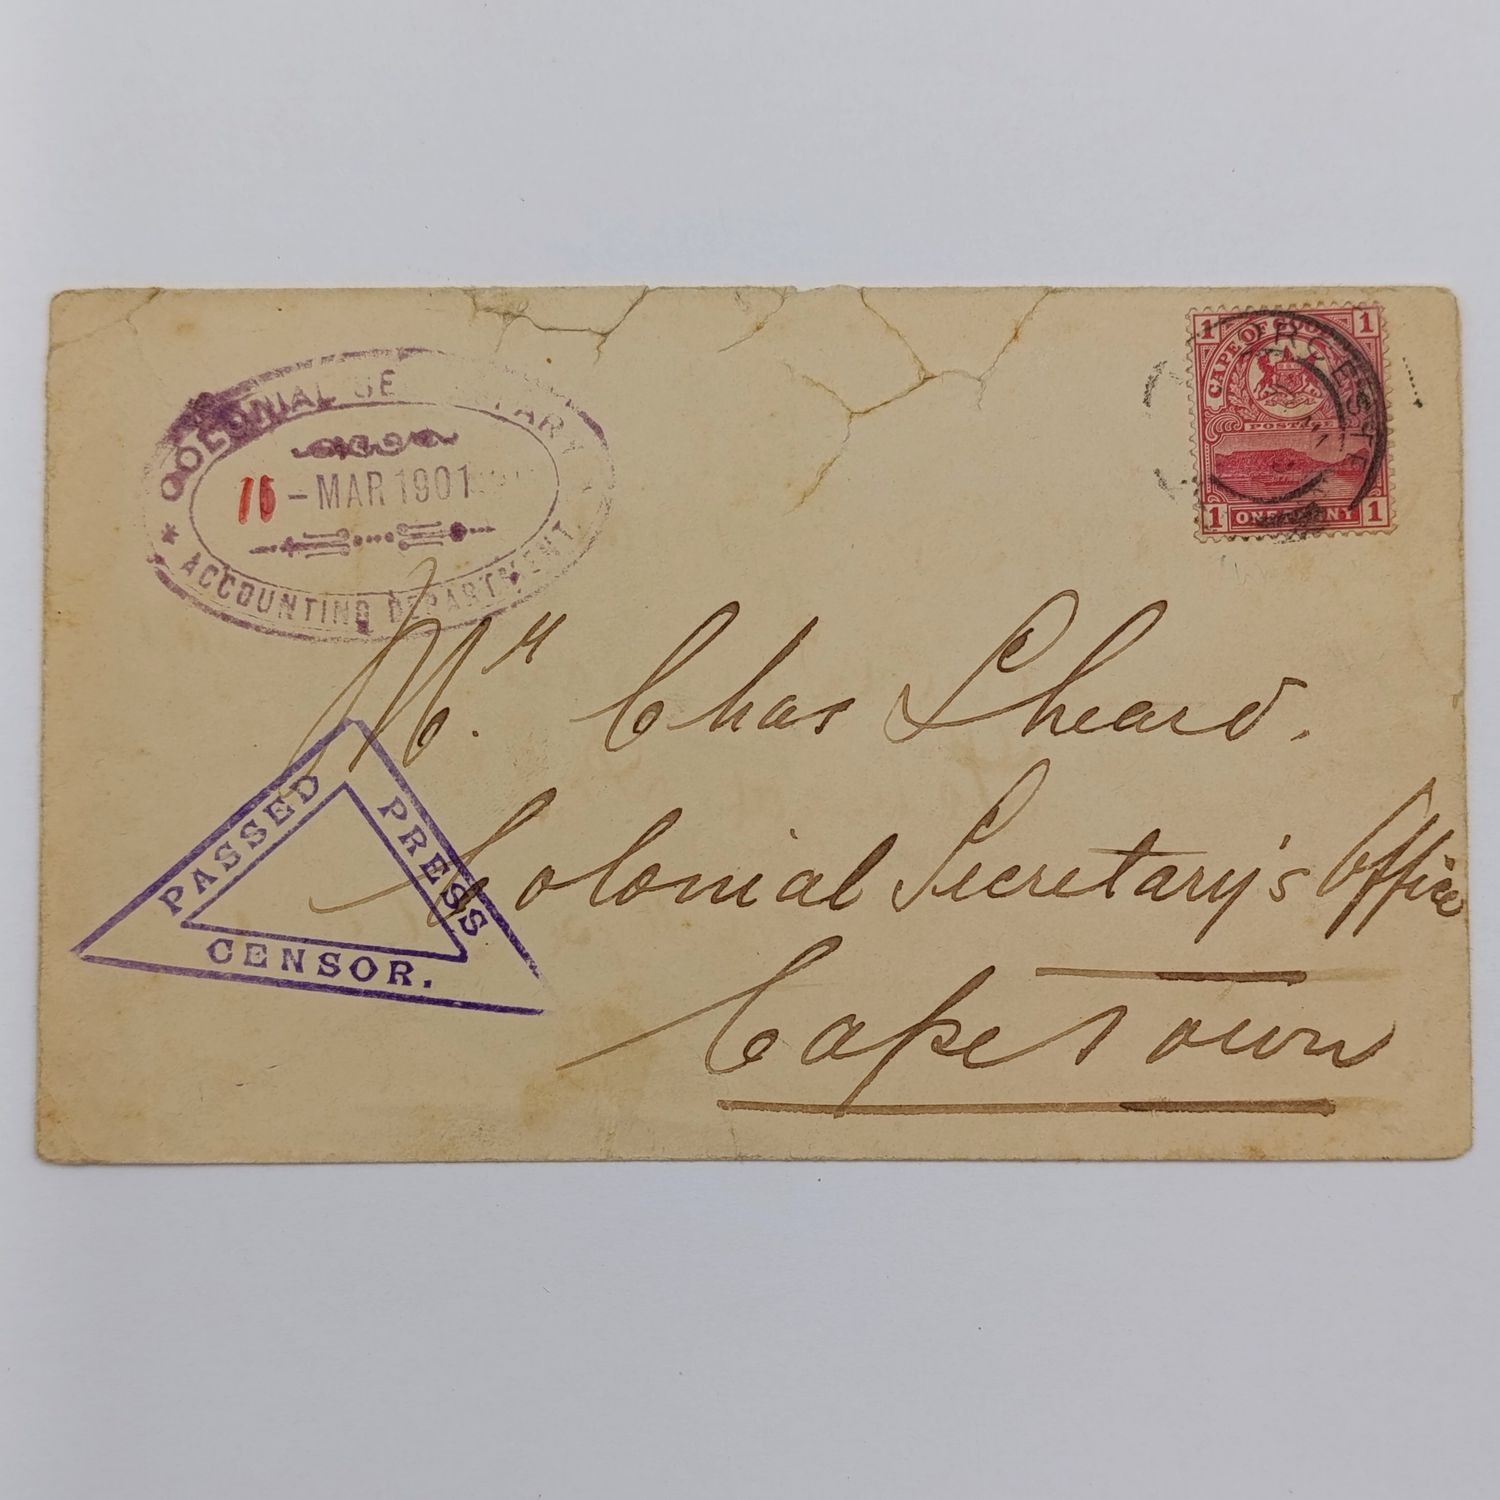 COLONIAL SECRETARY
15 - MAR 1901
* ACCOUNTING DEPARTMENT
1 1
CAPE OF GOOD
POSTAGE
1 ONE PENNY 1
Mr. Chas Sheard.
Colonial Secretary's Office
Cape Town
PASSED
PRESS
CENSOR.